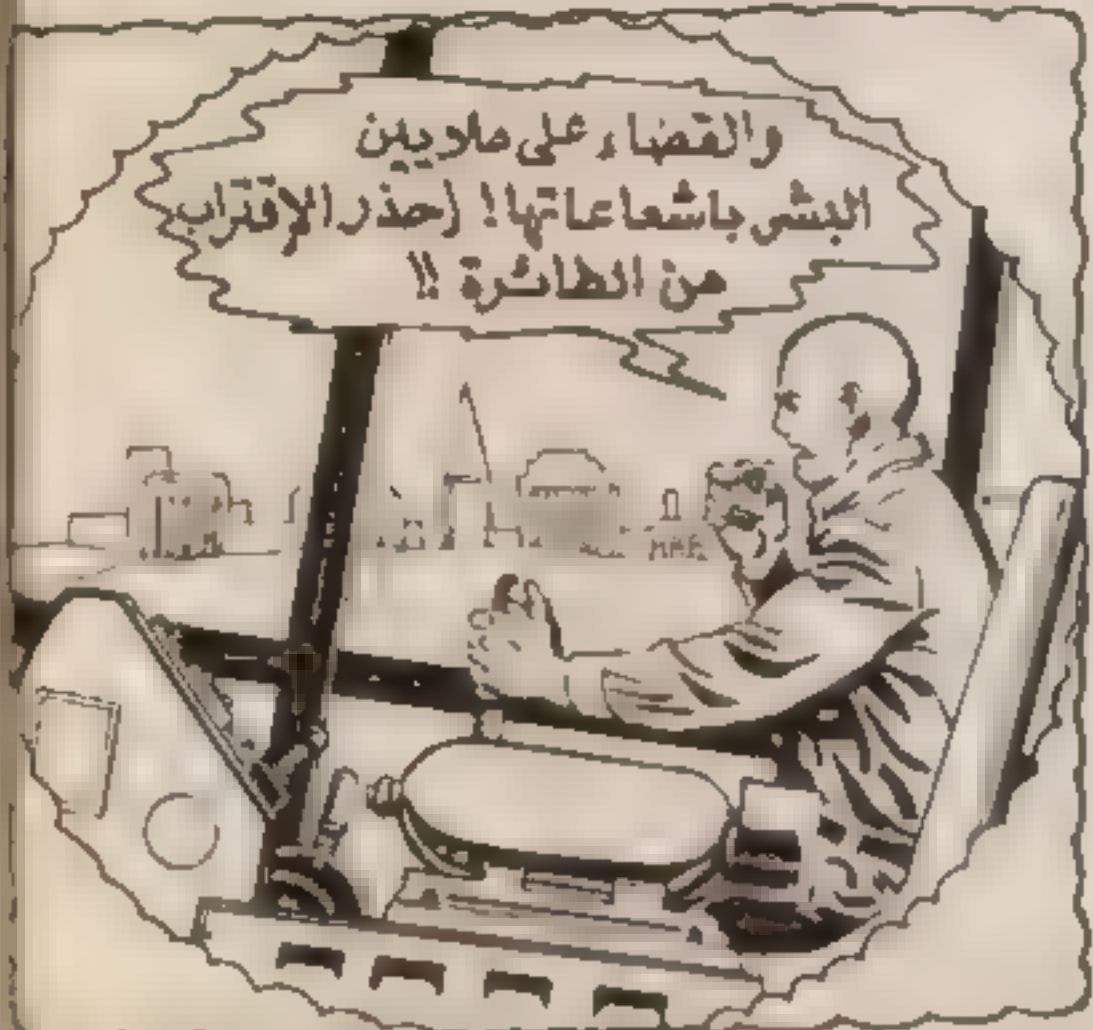 والقضاء على ملايين
البشر باشعاعاتها! إحذر الإقتراب
من الطائرة !!